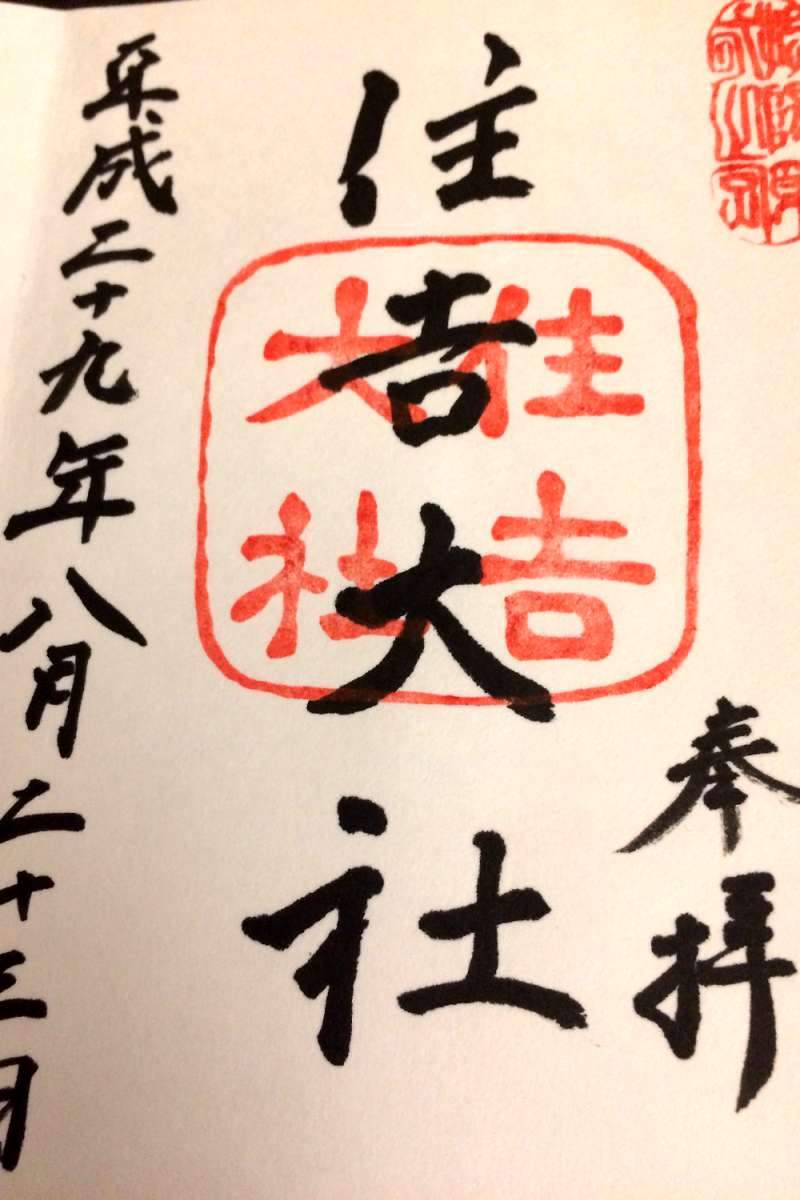 奉拝
住吉大社
住吉
大社
平成二十九年八月二十三日